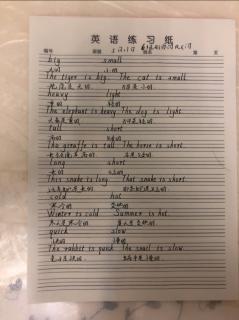 英语练习纸
编号 班级 姓名 第 页
big small
大的 小的
The tiger is big. The cat is small.
heavy light
重的 轻的
The elephant is heavy The dog is light
大象是重的
tall short
The giraffe is tall The horse is short.
long short
长的 短的
This snake is long. That snake is short.
cold hot
寒冷的
Winter is cold Summer is hot.
冬天是寒冷的
quick slow
快的 慢的
The rabbit is quick The snail is slow.
兔子是快的 蜗牛是慢的